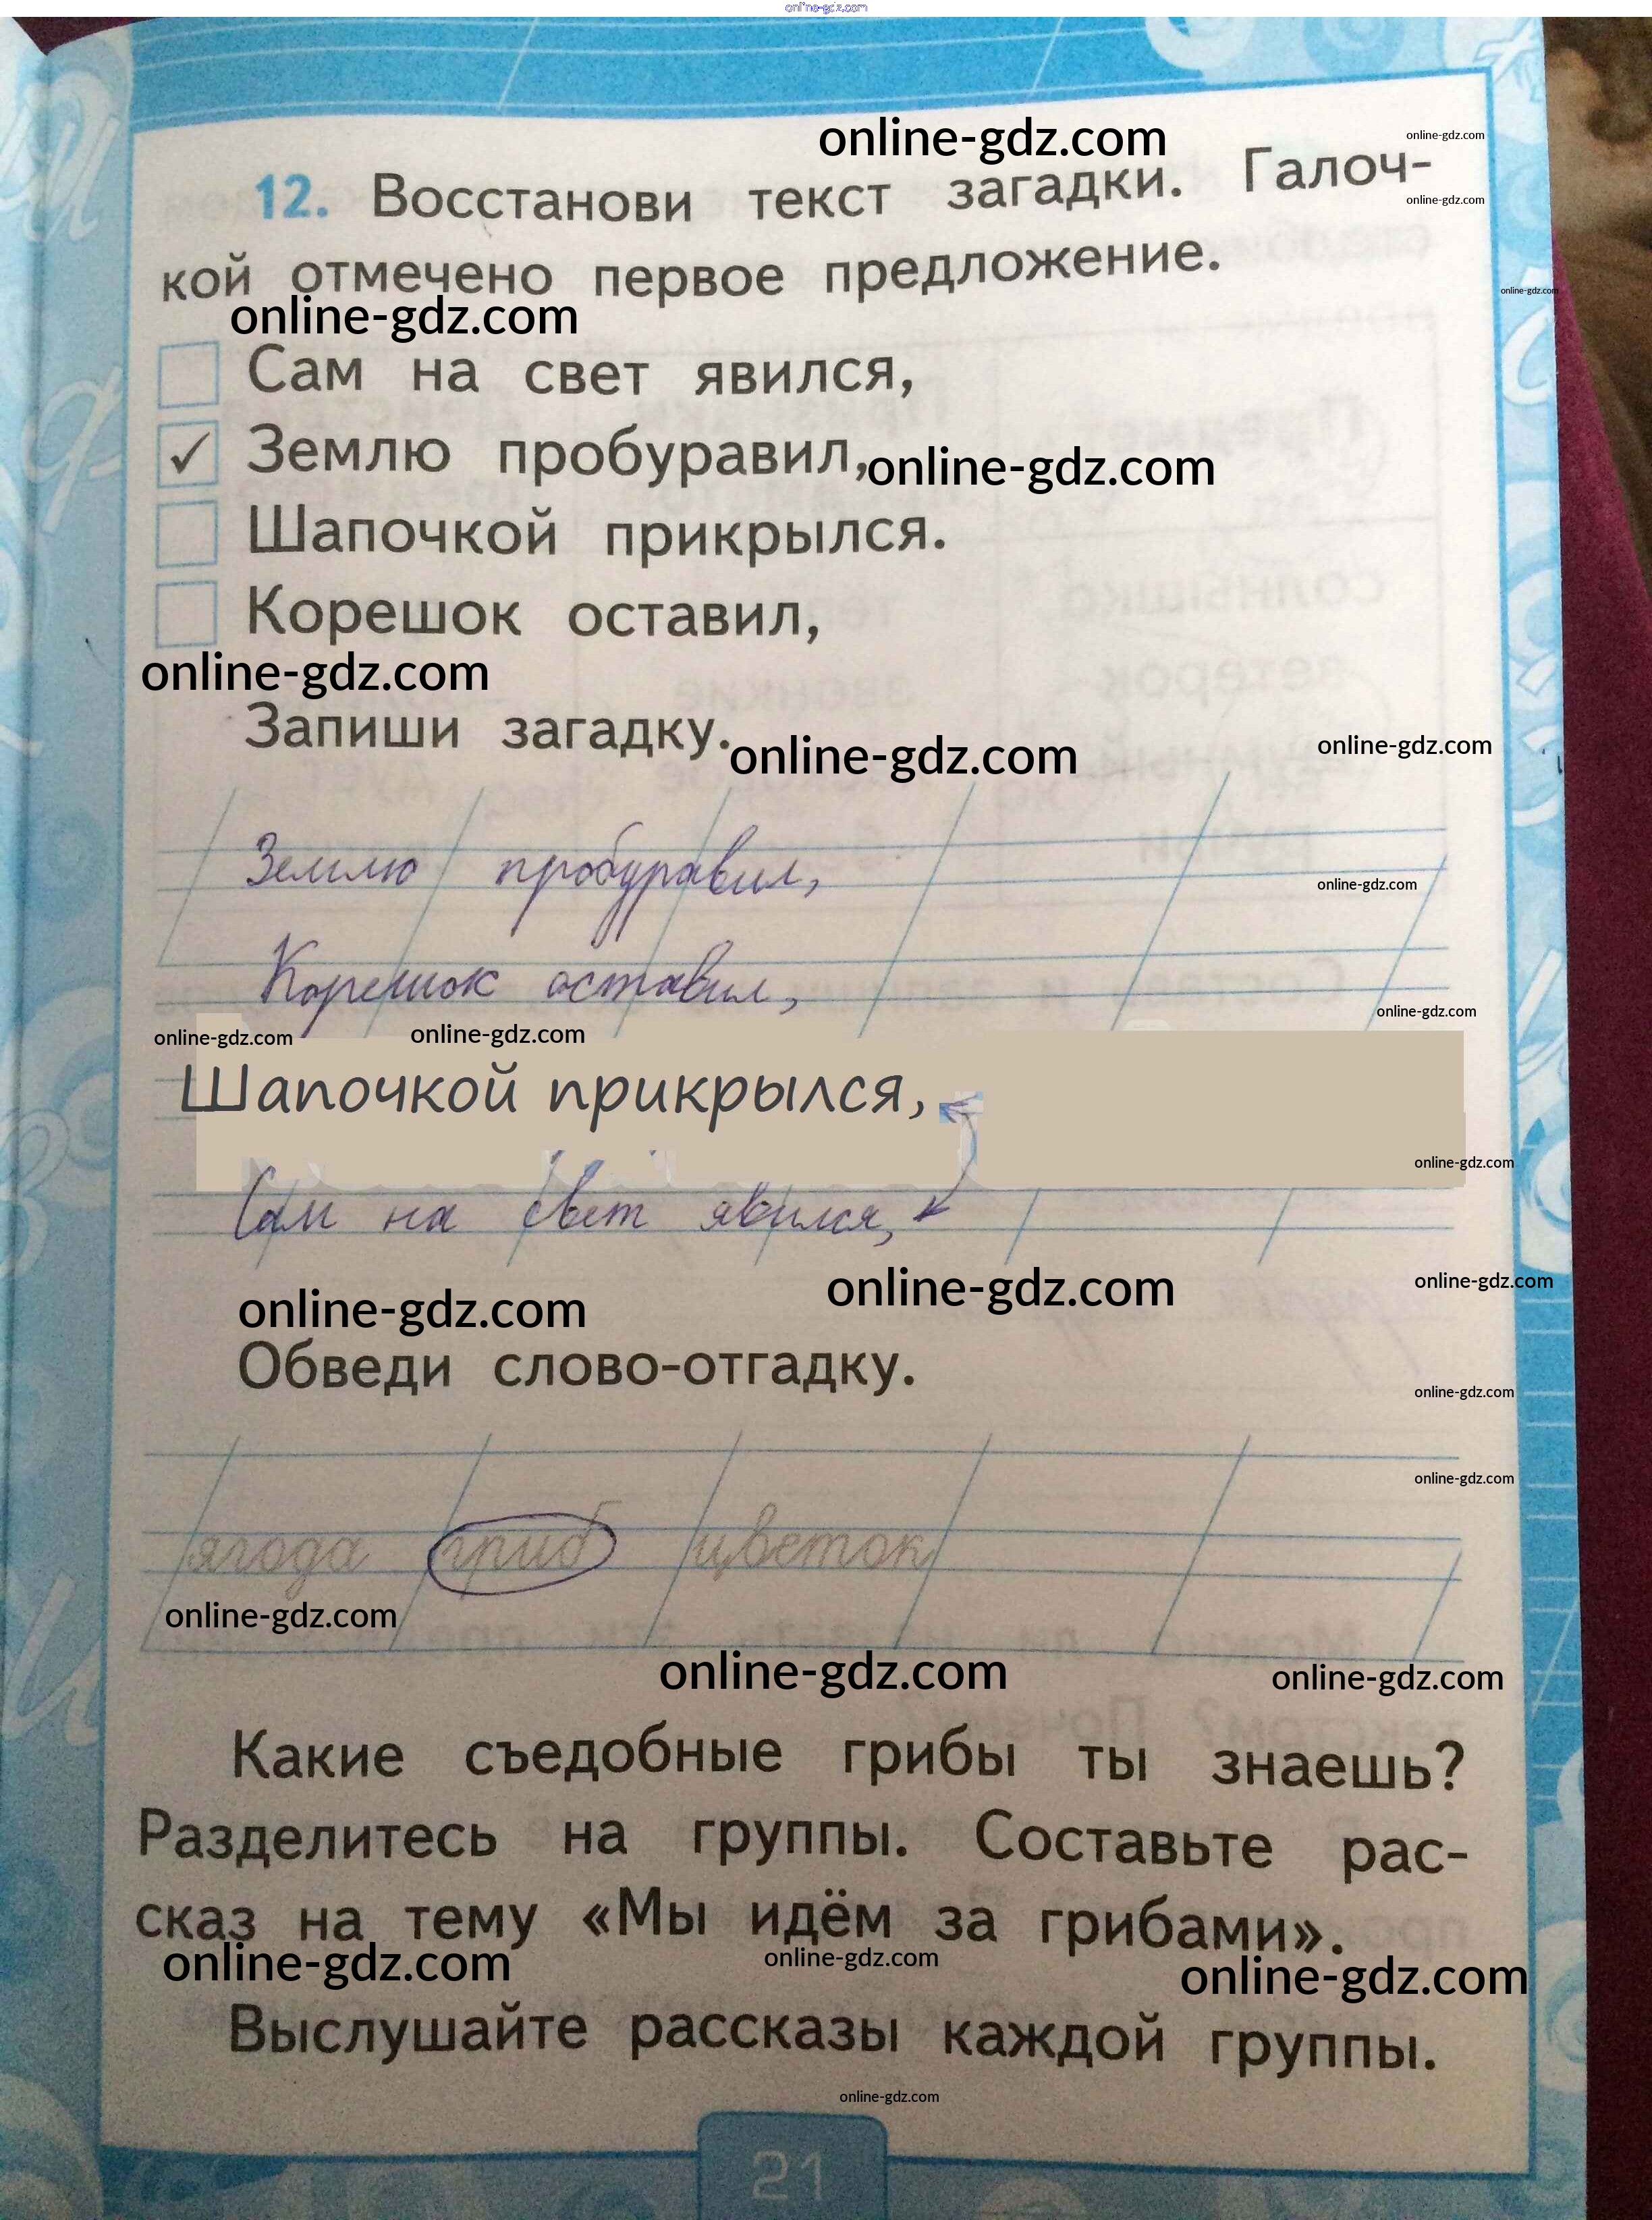 online-gdz.com
online-gdz.com
online-gdz.com
12. Восстанови текст загадки. Галоч-
online-gdz.com
кой отмечено первое предложение.
online-gdz.com
online-gdz.com
Сам на свет явился,
✓ Землю пробуравил,
online-gdz.com
Шапочкой прикрылся.
Корешок оставил,
online-gdz.com
Запиши загадку.
online-gdz.com
online-gdz.com
Землю пробуравил,
online-gdz.com
Корешок оставил,
online-gdz.com
online-gdz.com
online-gdz.com
Шапочкой прикрылся,
online-gdz.com
Сам на свет явился,
online-gdz.com
online-gdz.com
online-gdz.com
Обведи слово-отгадку.
online-gdz.com
online-gdz.com
ягода гриб цветок
online-gdz.com
online-gdz.com
online-gdz.com
Какие съедобные грибы ты знаешь?
Разделитесь на группы. Составьте рас-
сказ на тему «Мы идём за грибами».
online-gdz.com
online-gdz.com
online-gdz.com
Выслушайте рассказы каждой группы.
online-gdz.com
21